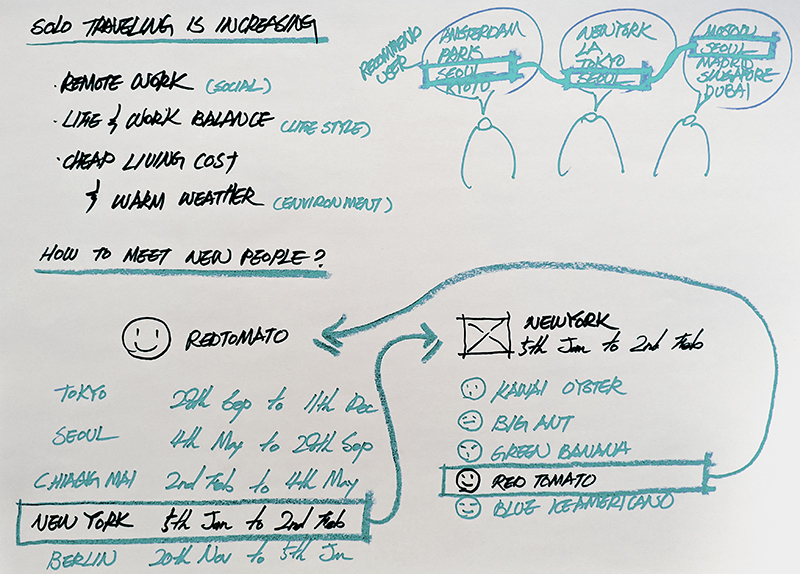 SOLO TRAVELING IS INCREASING
· REMOTE WORK (SOCIAL)
· LIFE & WORK BALANCE (LIFE STYLE)
· CHEAP LIVING COST
& WARM WEATHER (ENVIRONMENT)
RECOMMEND
USER
AMSTERDAM
PARIS
SEOUL
KYOTO
NEWYORK
LA
TOKYO
SEOUL
SEOUL
MADRID
SINGAPORE
DUBAI
HOW TO MEET NEW PEOPLE?
REDTOMATO
TOKYO 28th Sep to 11th Dec
SEOUL 4th May to 28th Sep
CHIANG MAI 2nd Feb to 4th May
NEW YORK 5th Jan to 2nd Feb
BERLIN 20th Nov to 5th Jan
NEWYORK
5th Jan to 2nd Feb
KAWAI OYSTER
BIG ANT
GREEN BANANA
RED TOMATO
BLUE ICEAMERICANO